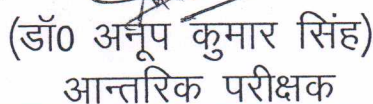 (डॉ0 अनूप कुमार सिंह)
आन्तरिक परीक्षक